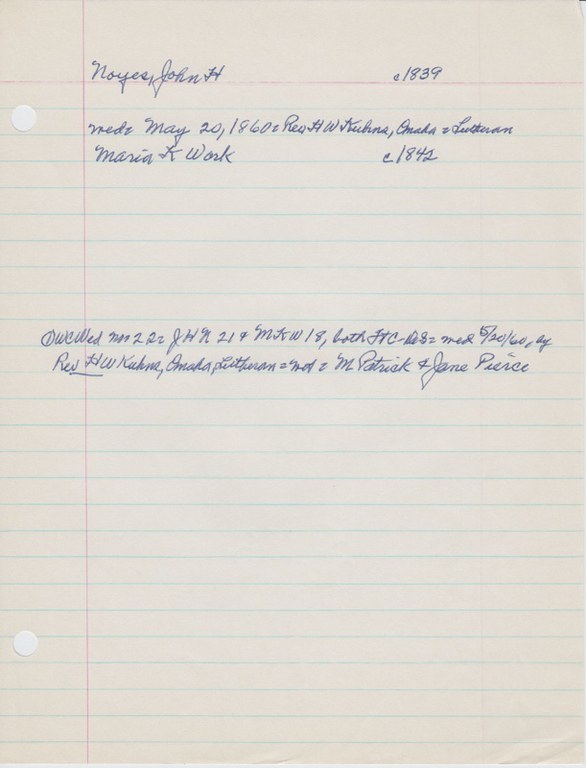 Noyes, John H c1839
med= May 20, 1860= Rev H W Kuhns, Omaha = Lutheran
Maria K Work c1842
① WCWed no 22= J H N 21 & M K W 18, both = med 5/20/60, by
Rev H W Kuhns, Omaha, Lutheran = = M Patrick & Jane Pierce